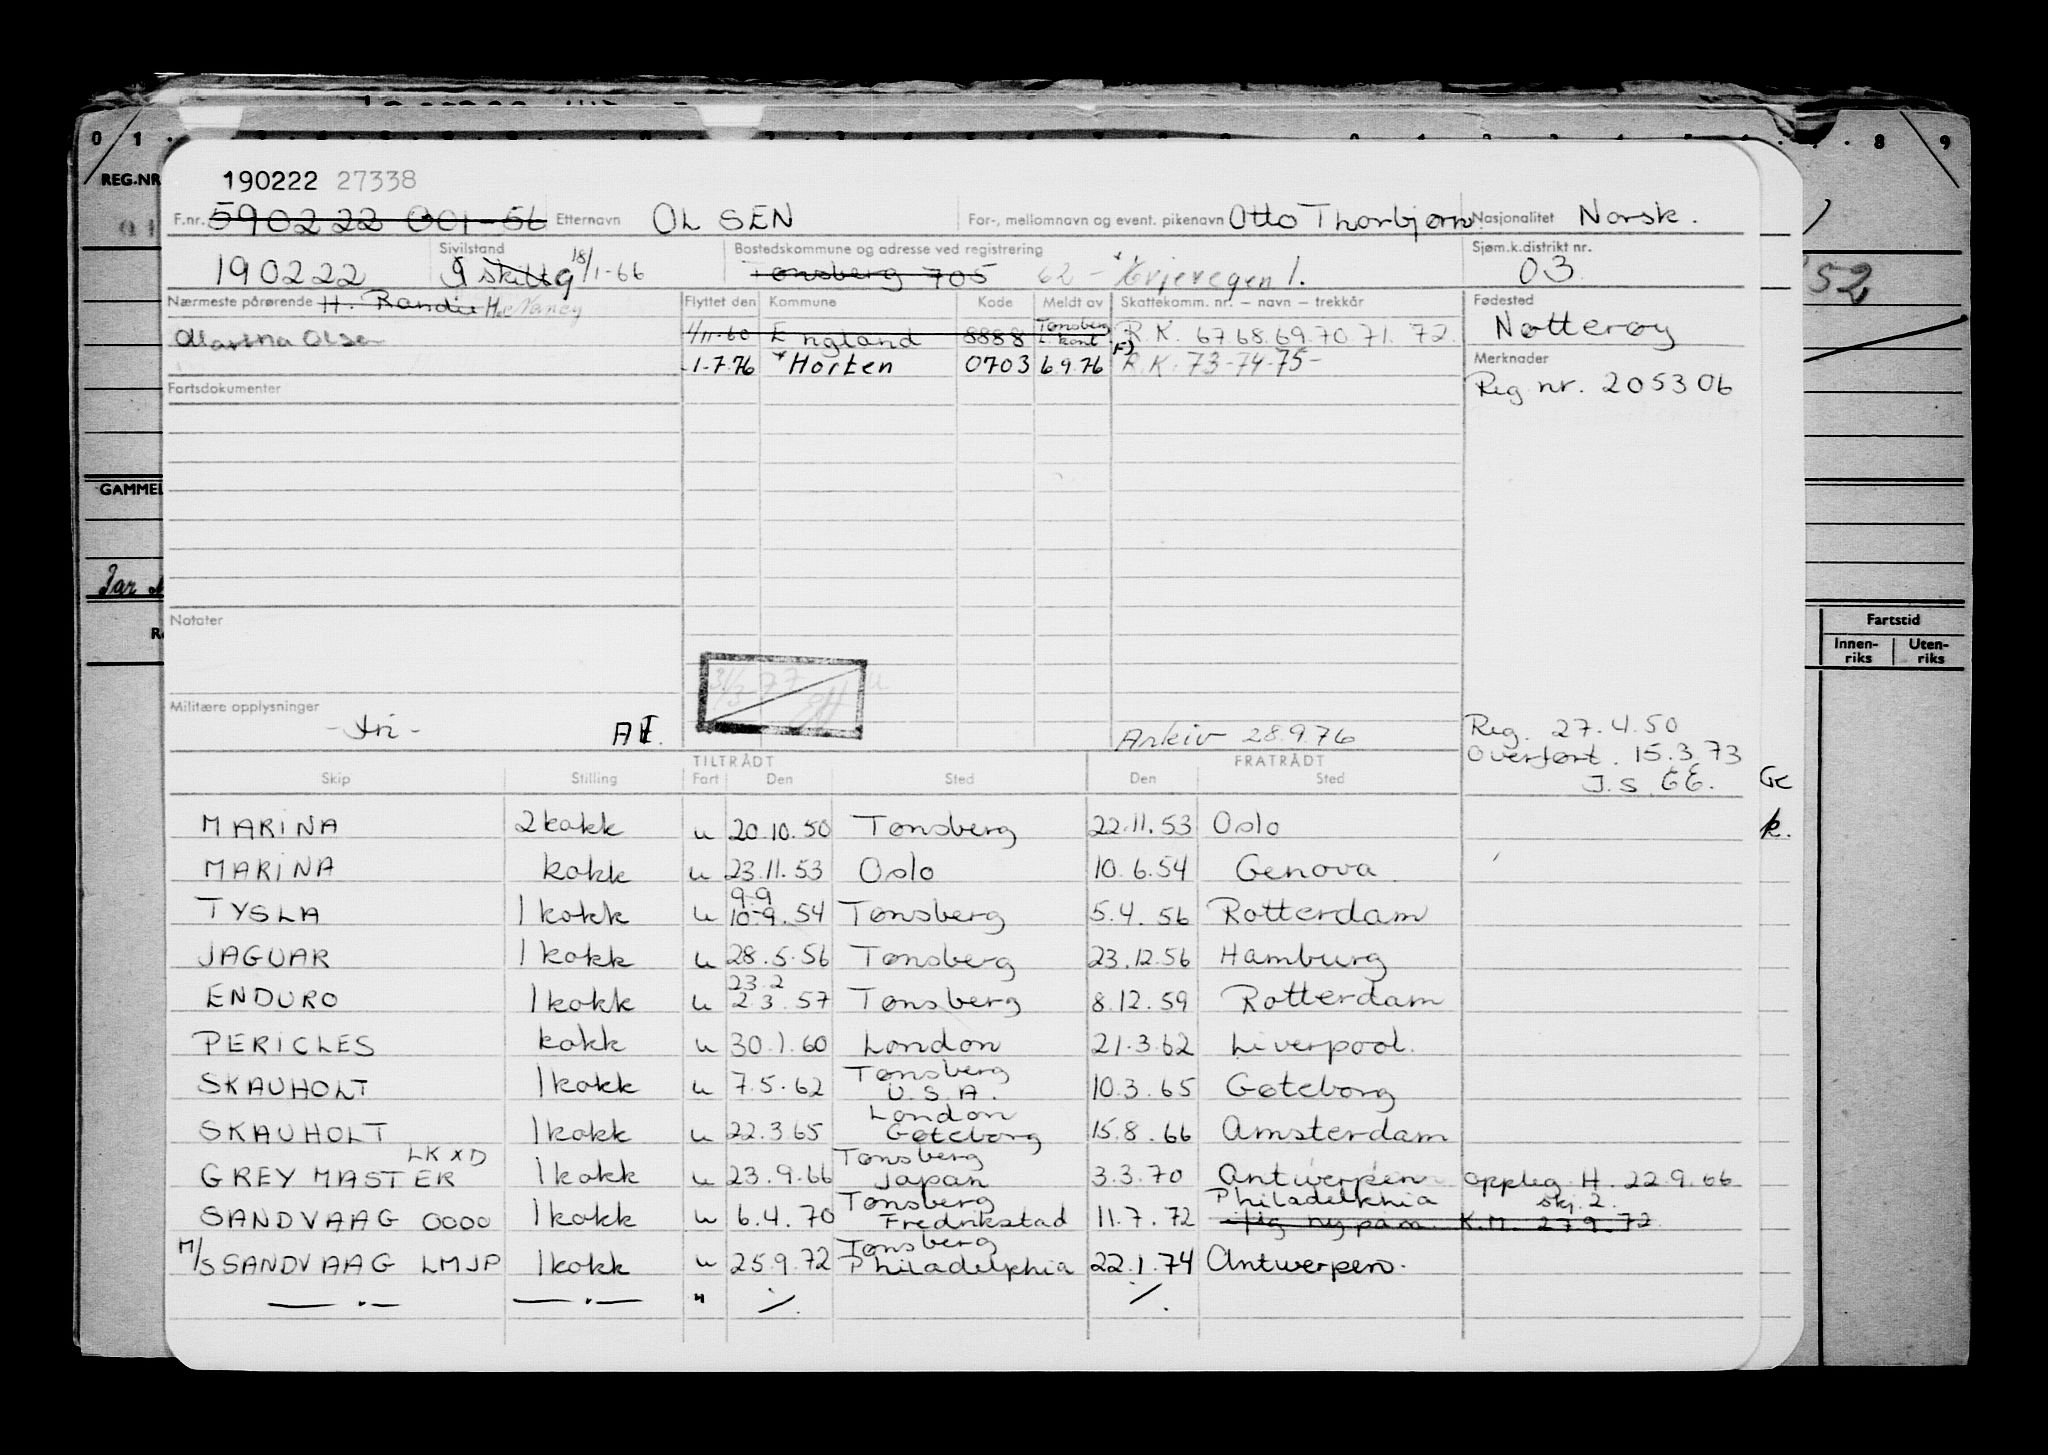 0 1 8 9
REG.NR
190222 27338
F.nr. 590222 001-56 Etternavn OLSEN For-, mellomnavn og event. pikenavn Otto Thorbjørn Nasjonalitet Norsk.
190222 Sivilstand G skilt g 18/1-66 Bostedskommune og adresse ved registrering Tønsberg 705 62 - Sjøm.k.distrikt nr. 03
Nærmeste pårørende H. Randi H. Nancy Flyttet den Kommune Kode Meldt av Skattekomm. nr. – navn – trekkår Fødested
Martha Olsen 1/11-60 England 8888 Tønsberg S. kont R.K. 67.68.69.70.71.72. Nøtterøy
1.7.76 Horten 0703 6.9.76 R.K. 73-74-75- Merknader
Fartsdokumenter Reg. nr. 205306
52
GAMMEL
Jar
Notater
Fartstid
Innen-riks Uten-riks
31/3-77
Militære opplysninger
- fri - Arkiv 28.9.76 Reg. 27.4.50
Overført. 15.3.73
J.S. EE.
TILTRÅDT FRATRÅDT
Skip Stilling Fart Den Sted Den Sted
MARINA 2 kokk u 20.10.50 Tønsberg 22.11.53 Oslo k.
MARINA kokk u 23.11.53 Oslo 10.6.54 Genova
9.9
TYSLA 1 kokk u 10-9.54 Tønsberg 5.4.56 Rotterdam
JAGUAR 1 kokk u 28.5.56 Tønsberg 23.12.56 Hamburg
23.2
ENDURO 1 kokk u 2.3.57 Tønsberg 8.12.59 Rotterdam
PERICLES kokk u 30.1.60 London 21.3.62 Liverpool.
SKAUHOLT 1 kokk u 7.5.62 Tønsberg U.S.A. 10.3.65 Gøteborg
SKAUHOLT 1 kokk u 22.3.65 London Gøteborg 15.8.66 Amsterdam
GREY MASTER LKXD 1 kokk u 23.9.66 Tønsberg Japan 3.3.70 Antwerpen oppleg. H. 22.9.66
SANDVAAG 0000 1 kokk u 6.4.70 Tønsberg Fredrikstad 11.7.72 Philadelphia skj. 2. K.M. 27.9.72
M/S SANDVAAG LMJP 1 kokk u 25.9.72 Tønsberg Philadelphia 22.1.74 Antwerpen.
— · — — · — " ./. ./.